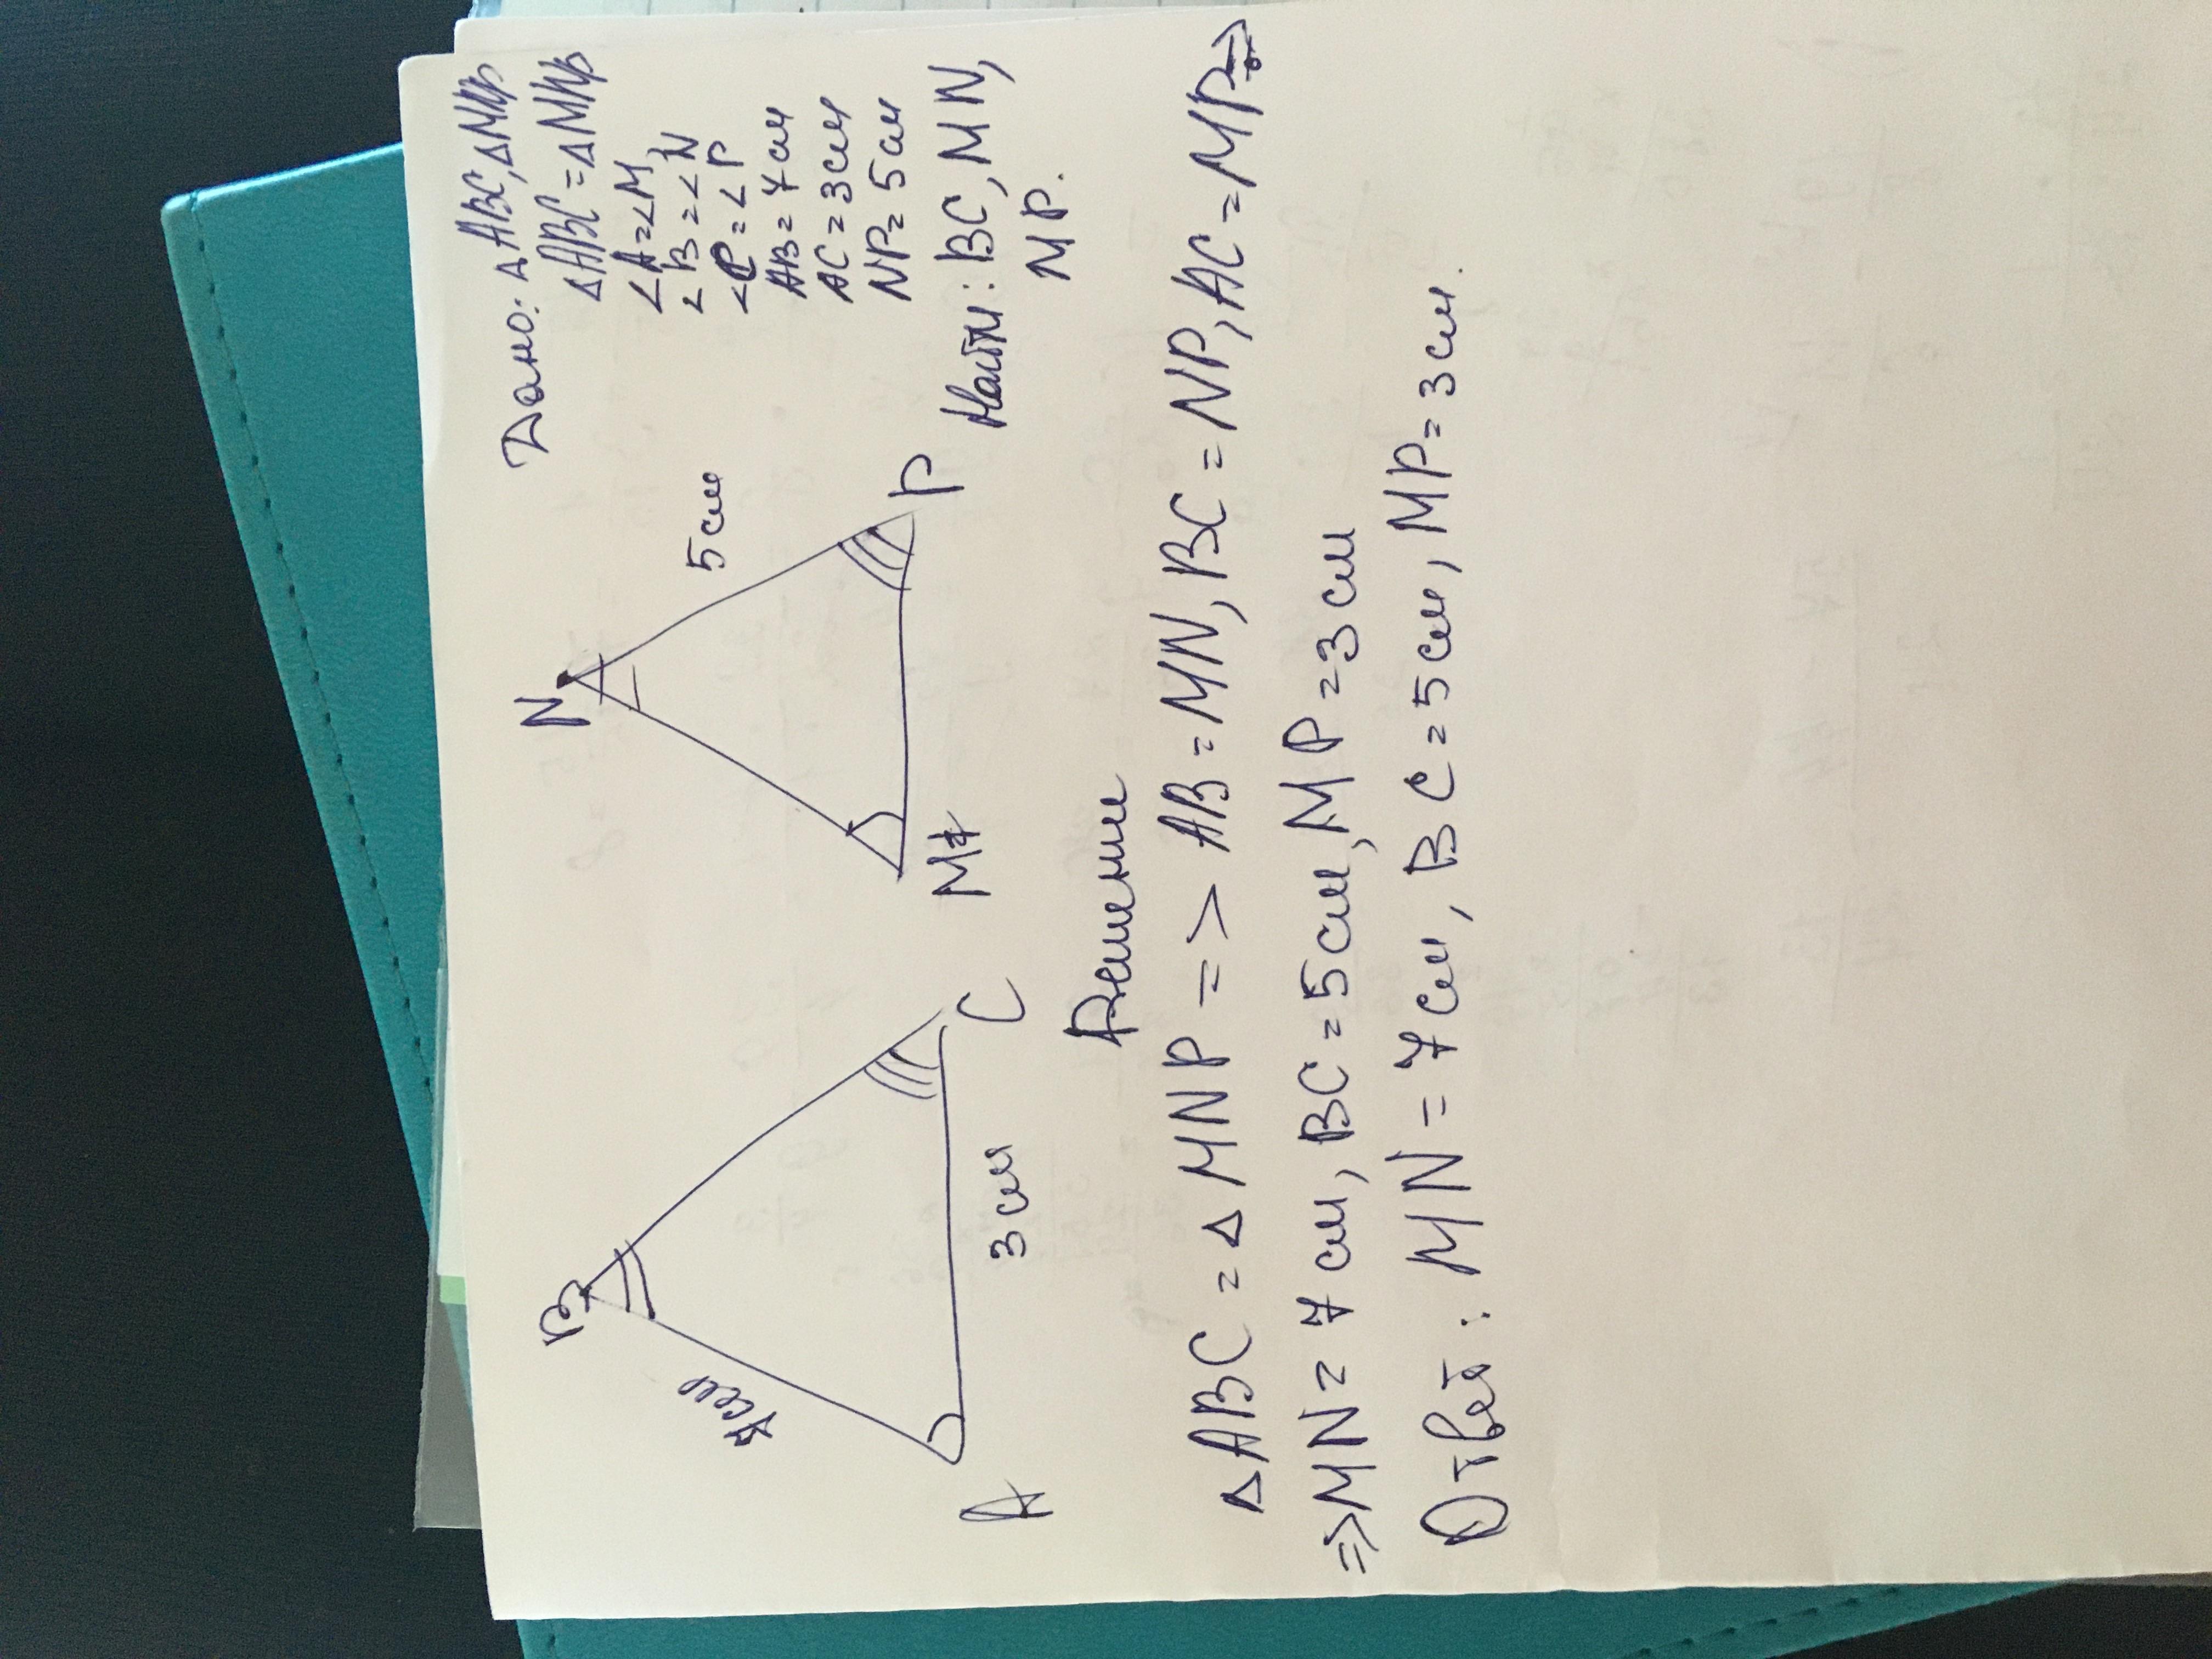 Дано: △ABC, △MNP
△ABC = △MNP
∠A = ∠M
∠B = ∠N
∠C = ∠P
AB = 7 см
AC = 3 см
NP = 5 см
Найти: BC, MN,
MP.
B
7 см
A
3 см
C
N
5 см
M
P
Решение
△ABC = △MNP => AB = MN, BC = NP, AC = MP =>
=> MN = 7 см, BC = 5 см, MP = 3 см
Ответ: MN = 7 см, BC = 5 см, MP = 3 см.